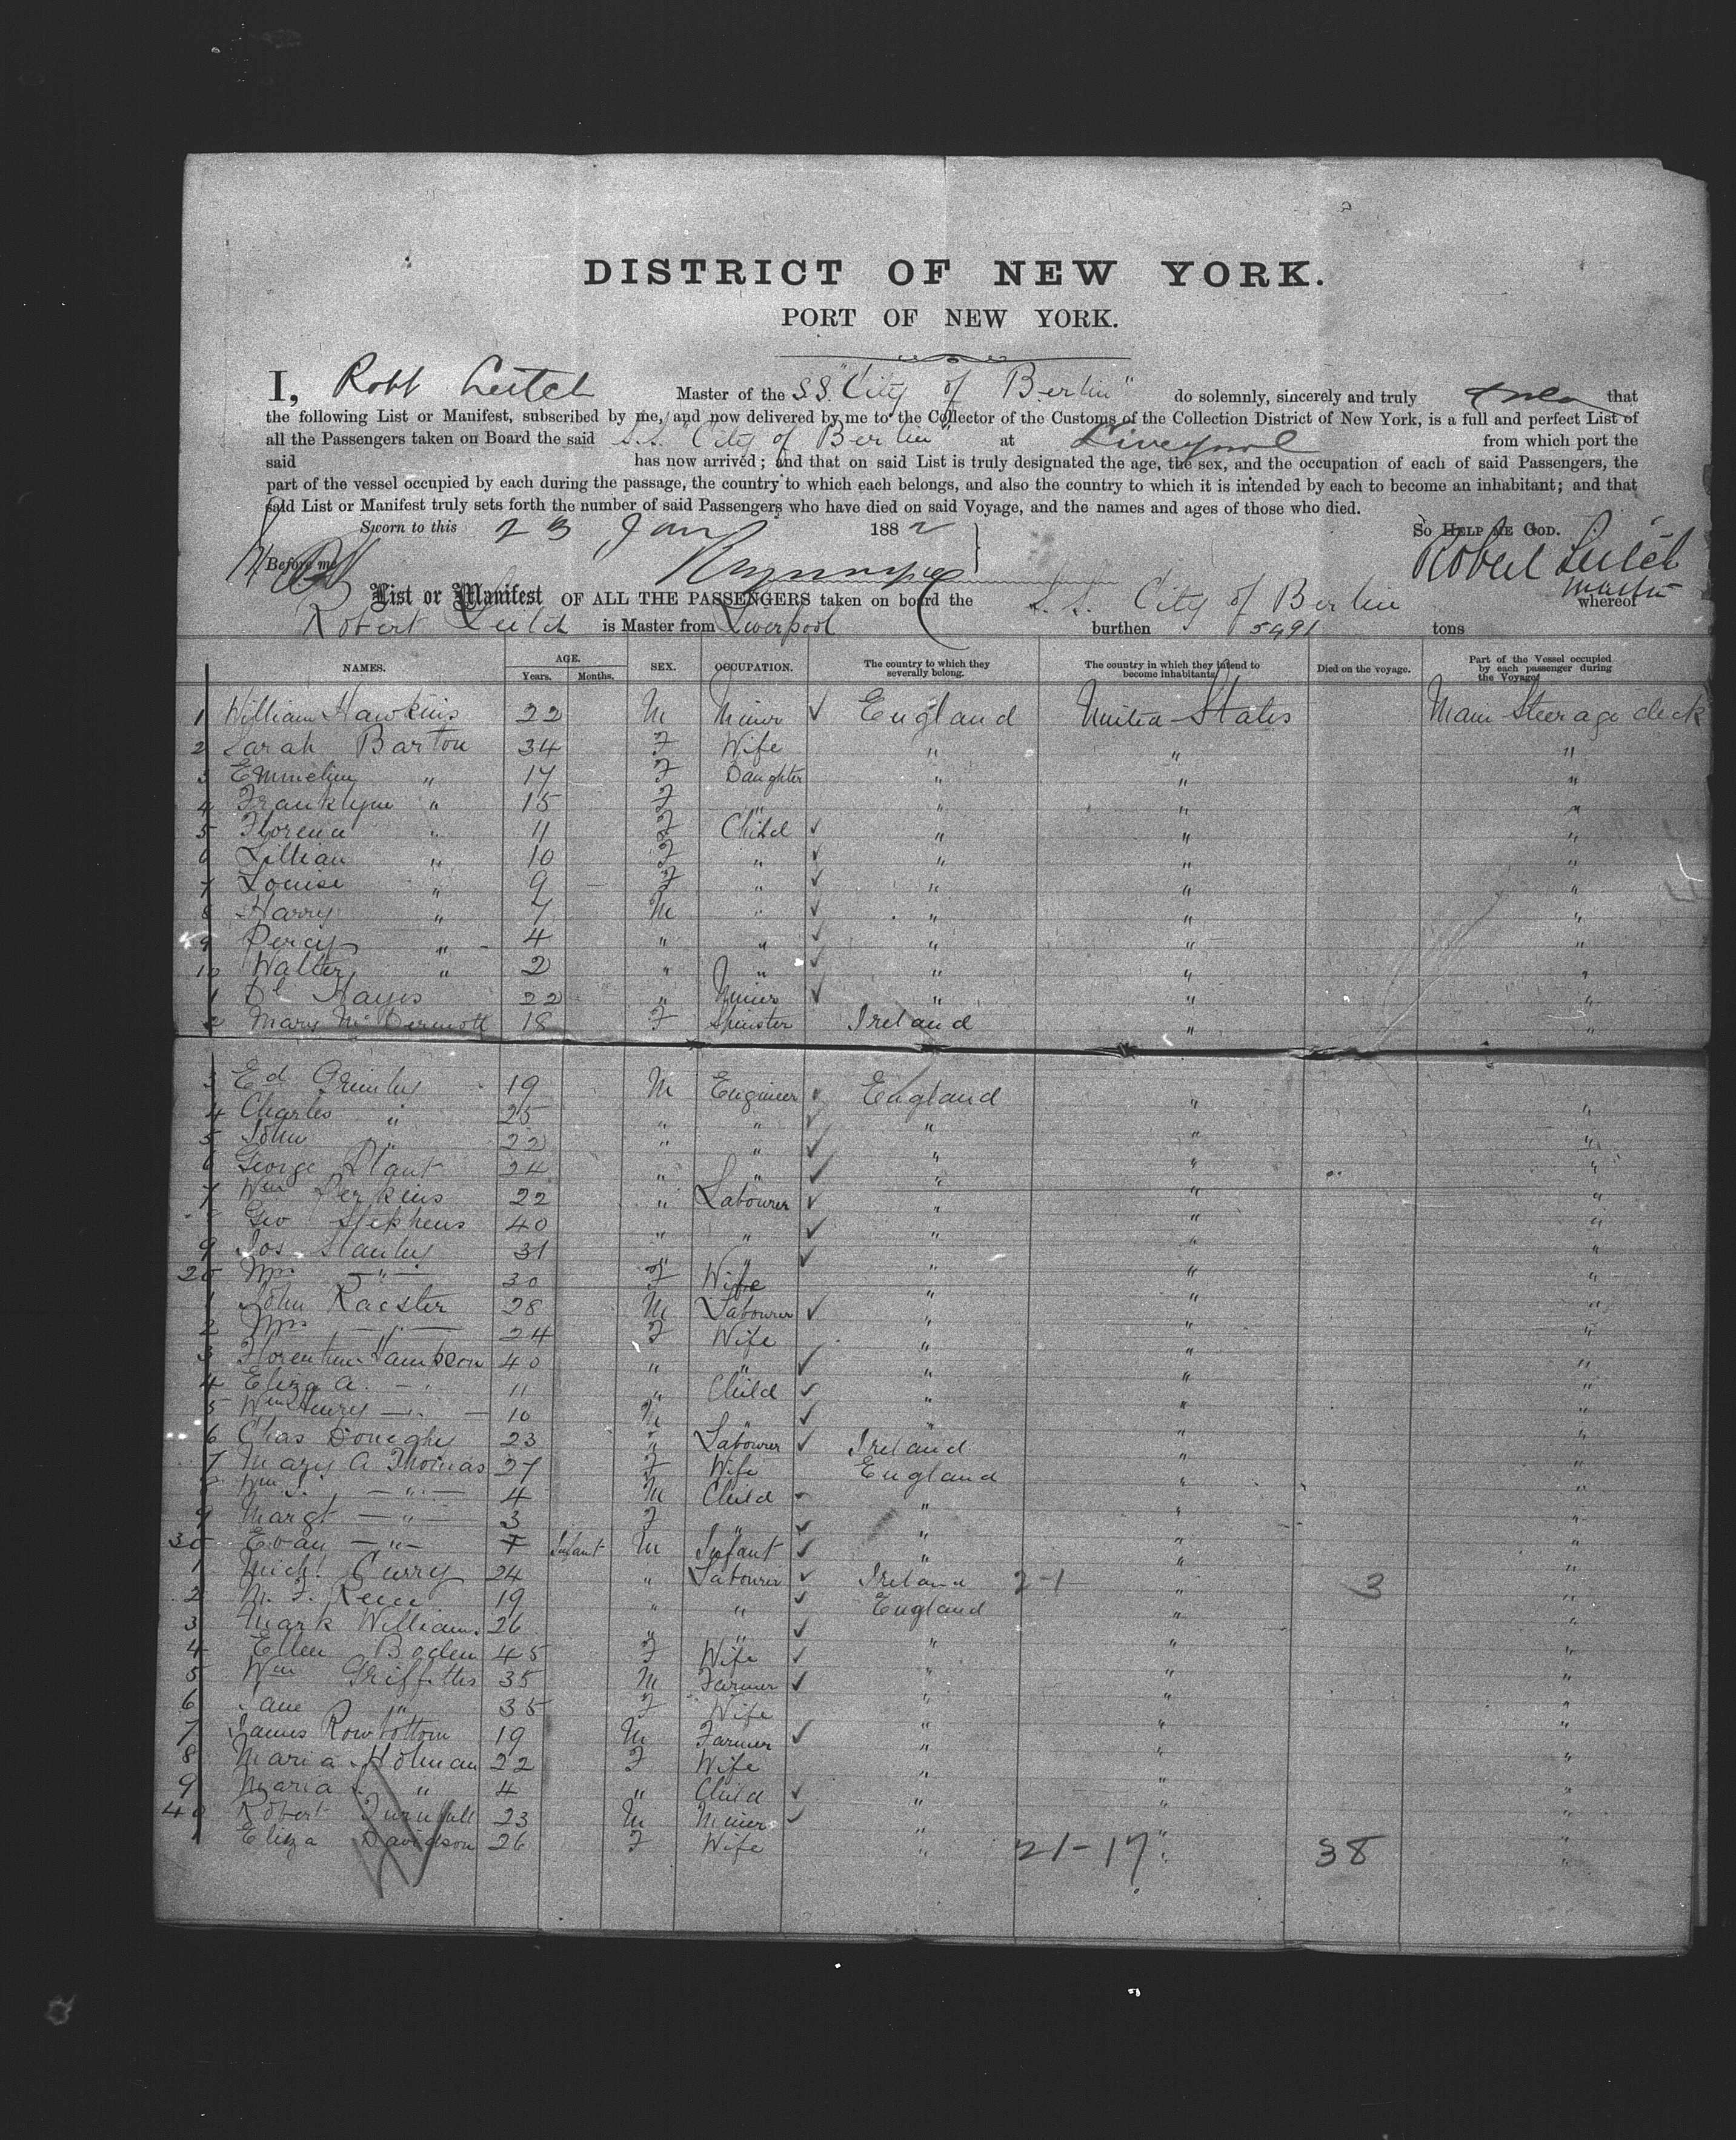 DISTRICT OF NEW YORK.
PORT OF NEW YORK.
I, Robt Leitch Master of the S.S. "City of Berlin" do solemnly, sincerely and truly that
the following List or Manifest, subscribed by me, and now delivered by me to the Collector of the Customs of the Collection District of New York, is a full and perfect List of
all the Passengers taken on Board the said S.S. "City of Berlin" at Liverpool from which port the
said has now arrived; and that on said List is truly designated the age, the sex, and the occupation of each of said Passengers, the
part of the vessel occupied by each during the passage, the country to which each belongs, and also the country to which it is intended by each to become an inhabitant; and that
said List or Manifest truly sets forth the number of said Passengers who have died on said Voyage, and the names and ages of those who died.
Sworn to this 23 Jany 1882 So HELP ME GOD.
Before me Robert Leitch
Master
List or Manifest OF ALL THE PASSENGERS taken on board the S.S. City of Berlin whereof
Robert Leitch is Master from Liverpool burthen 5491 tons
NAMES. AGE. Years. Months. SEX. OCCUPATION. The country to which they severally belong. The country in which they intend to become inhabitants. Died on the voyage. Part of the Vessel occupied by each passenger during the Voyage.
1 William Hawkins 22 M Miner ✓ England United States Main Steerage deck
2 Sarah Barton 34 F Wife " " "
3 Emmeline " 17 F Daughter " " "
4 Franklyne " 15 F " " " "
5 Florence " 11 F Child ✓ " " "
6 Lillian " 10 F " ✓ " " "
7 Louise " 9 F " ✓ " " "
8 Harry " 7 M " ✓ " " "
9 Percy " 4 " " ✓ " " "
10 Walter " 2 " " ✓ " " "
1 Hayes 22 " Miner ✓ " " "
2 Mary McDermott 18 F Spinster Ireland " "
3 Ed Grimley 19 M Engineer ✓ England " "
4 Charles " 25 " " ✓ " " "
5 John " 22 " " ✓ " " "
6 George Plant 24 " " ✓ " " "
7 Wm Perkins 22 " Labourer ✓ " " "
Geo Stephens 40 " " ✓ " " "
9 Jos Stanley 31 " " ✓ " " "
20 Mrs " 30 F Wife " " "
1 John Racster 28 M Labourer ✓ " " "
2 Mrs " 24 F Wife " " "
3 Hampson 40 " " ✓ " " "
4 Eliza A. " 11 " Child ✓ " " "
5 Wm Henry " 10 M " ✓ " " "
6 Chas Doneghy 23 " Labourer ✓ Ireland " "
7 Mary A Thomas 27 F Wife England " "
8 Wm J. " 4 M Child " " "
9 Margt " 3 F " ✓ " " "
30 Evan " Infant M Infant ✓ " " "
1 Michl Curry 24 " Labourer ✓ Ireland 2-1 " 3 "
2 19 " " ✓ England " "
3 Mark Williams 26 " " ✓ " " "
4 Ellen Boden 45 F Wife ✓ " " "
5 Wm Griffiths 35 M Farmer ✓ " " "
6 Jane " 35 F Wife " " "
7 James Rowbottom 19 M Farmer ✓ " " "
8 Maria Holman 22 F Wife " " "
9 Maria " 4 " Child ✓ " " "
40 Robert Turnbull 23 M Miner ✓ " " "
1 Eliza Davidson 26 F Wife " 21-17 " 38 "